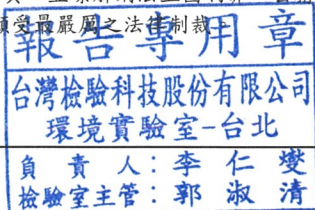 願受最嚴厲之法律制裁
報告專用章
台灣檢驗科技股份有限公司
環境實驗室-台北
負責人：李仁燮
檢驗室主管：郭淑清